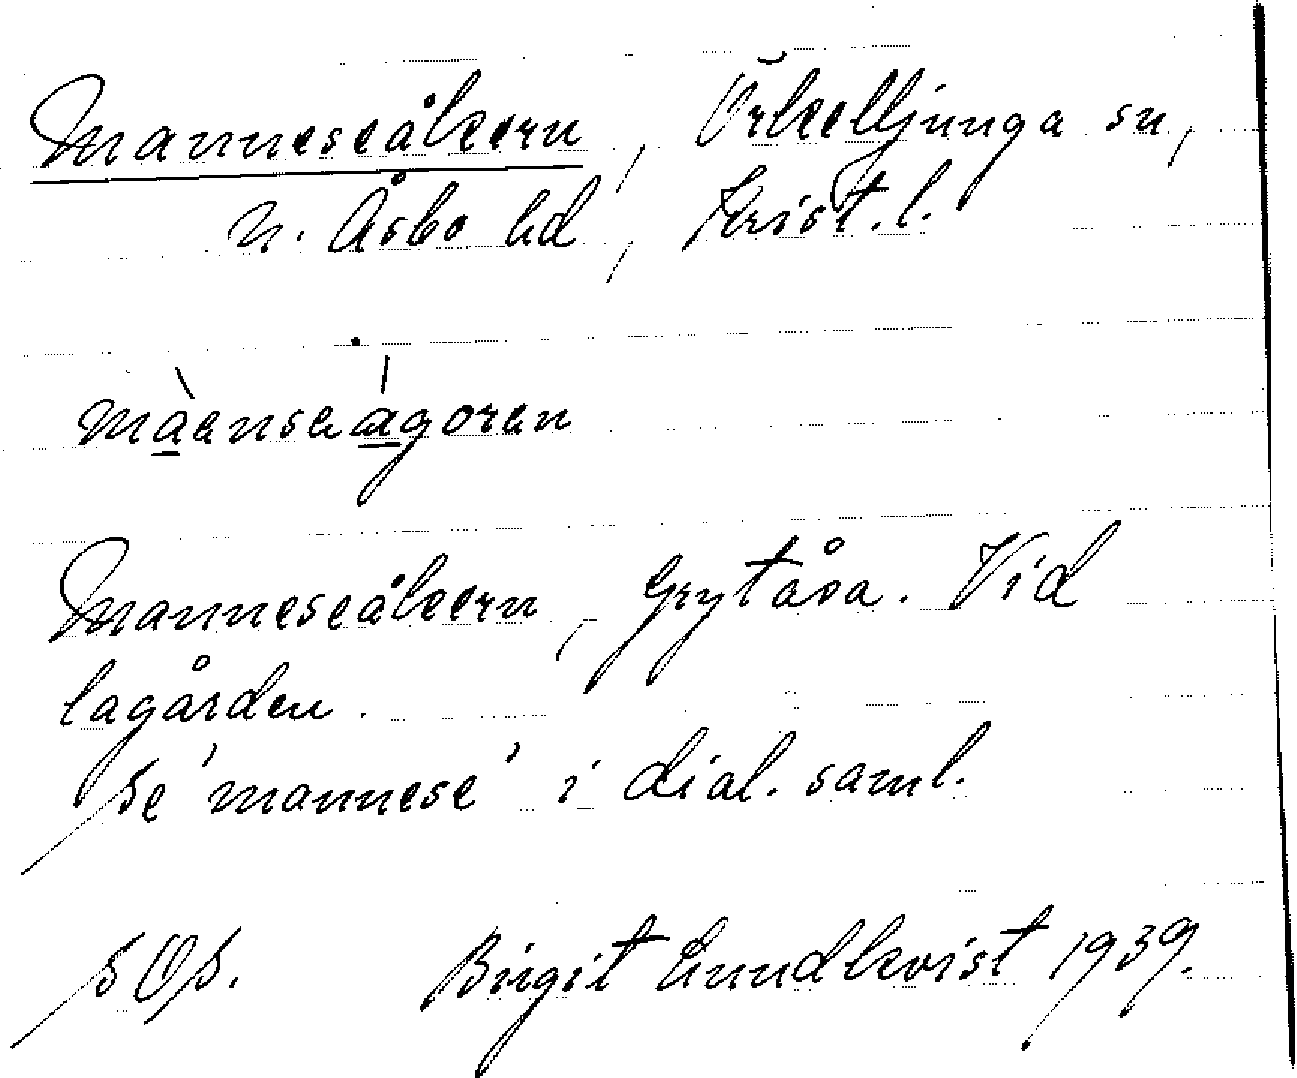 Manneseåkern, Örkelljunga sn,
N. Åsbo hd, Krist. l.
màansaágoren
Manneseåkern, Grytåsa. Vid
lagården.
Se 'mannese' i dial. saml.
SOS. Birgit Lundkvist 1939.